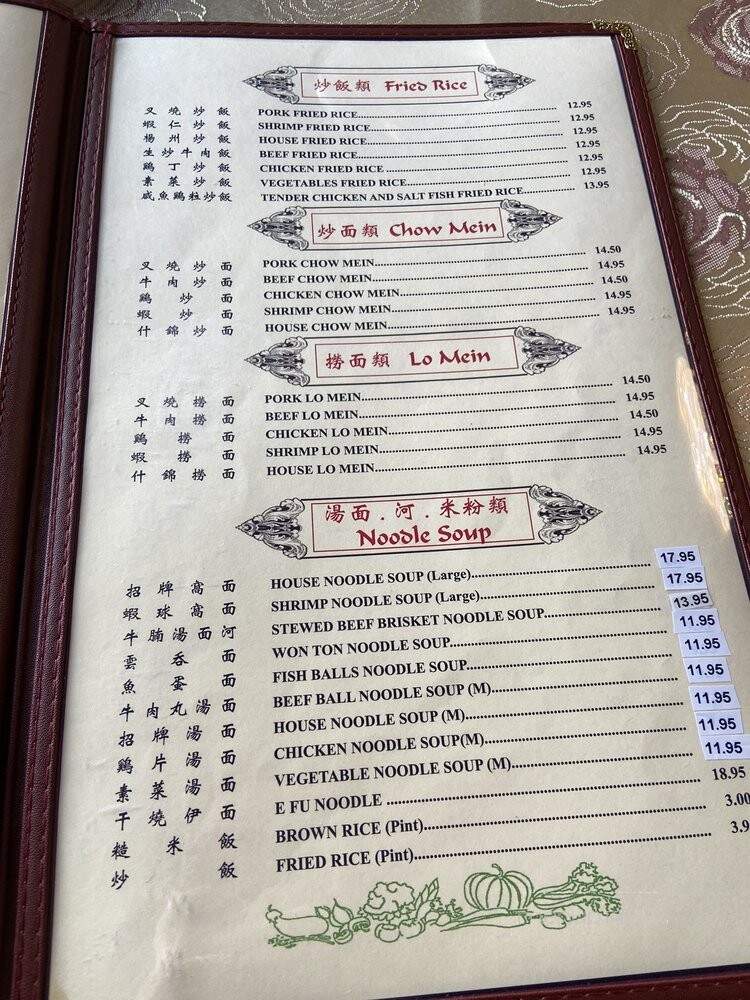 炒飯類 Fried Rice
叉燒炒飯 PORK FRIED RICE 12.95
蝦仁炒飯 SHRIMP FRIED RICE 12.95
楊州炒飯 HOUSE FRIED RICE 12.95
生炒牛肉飯 BEEF FRIED RICE 12.95
鷄丁炒飯 CHICKEN FRIED RICE 12.95
素菜炒飯 VEGETABLES FRIED RICE 12.95
咸魚鷄粒炒飯 TENDER CHICKEN AND SALT FISH FRIED RICE 13.95
炒面類 Chow Mein
叉燒炒面 PORK CHOW MEIN 14.50
牛肉炒面 BEEF CHOW MEIN 14.95
鷄炒面 CHICKEN CHOW MEIN 14.50
蝦炒面 SHRIMP CHOW MEIN 14.95
什錦炒面 HOUSE CHOW MEIN 14.95
撈面類 Lo Mein
叉燒撈面 PORK LO MEIN 14.50
牛肉撈面 BEEF LO MEIN 14.95
鷄撈面 CHICKEN LO MEIN 14.50
蝦撈面 SHRIMP LO MEIN 14.95
什錦撈面 HOUSE LO MEIN 14.95
湯面.河.米粉類
Noodle Soup
招牌窩面 HOUSE NOODLE SOUP (Large) 17.95
蝦球窩面 SHRIMP NOODLE SOUP (Large) 17.95
牛腩湯面河 STEWED BEEF BRISKET NOODLE SOUP 13.95
雲吞面 WON TON NOODLE SOUP 11.95
魚蛋面 FISH BALLS NOODLE SOUP 11.95
牛肉丸湯面 BEEF BALL NOODLE SOUP (M) 11.95
招牌湯面 HOUSE NOODLE SOUP (M) 11.95
鷄片湯面 CHICKEN NOODLE SOUP(M) 11.95
素菜湯面 VEGETABLE NOODLE SOUP (M) 11.95
干燒伊面 E FU NOODLE 18.95
糙米飯 BROWN RICE (Pint) 3.00
炒飯 FRIED RICE (Pint) 3.9